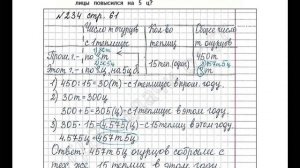 лицы повысился на 5 ц?
№ 234 стр. 61
Т огурцов с 1 теплицы
Кол-во теплиц
Общее число т огурцов
Прош. г. - по ? т
15 теп. (один.)
450 т
Этот г. - ? , на 5 ц б.
? т
1) 450 : 15 = 30 (т) - с 1 теплице
2) 30 т = 300 ц
300 + 5 = 305 (ц) - с 1 теплице в этом году.
3) 305 · 15 = 4.575 (ц) - с 15 теплиц в этом году
4.575 (ц) = 457 т 5 ц
Ответ: 457 т 5 ц огурцов собрали с
тех же 15 теплиц в этом году.